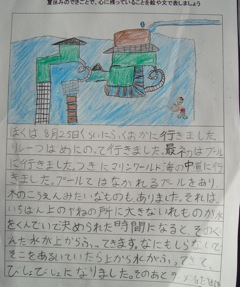 夏休みのできごとで、心に残っていることを絵や文で表しましょう
ぼくは8月25日くらいにふくおかに行きました
りゆう一つはめにのって行きました。最初はプール
に行きました。つぎにマリンワールド海の中道に行
きました。プールではながれるプールをあり
木のこうえんみたいなものもありました。それは、
いちばん上のやねの所に大きないれものが水
をくんでいて決められた時間になると、そのく
んだ水が上からふってきます。なにもしらないで
そこをあるいていたら上から水がふってきて、
びしょびしょになりました。そのあとの